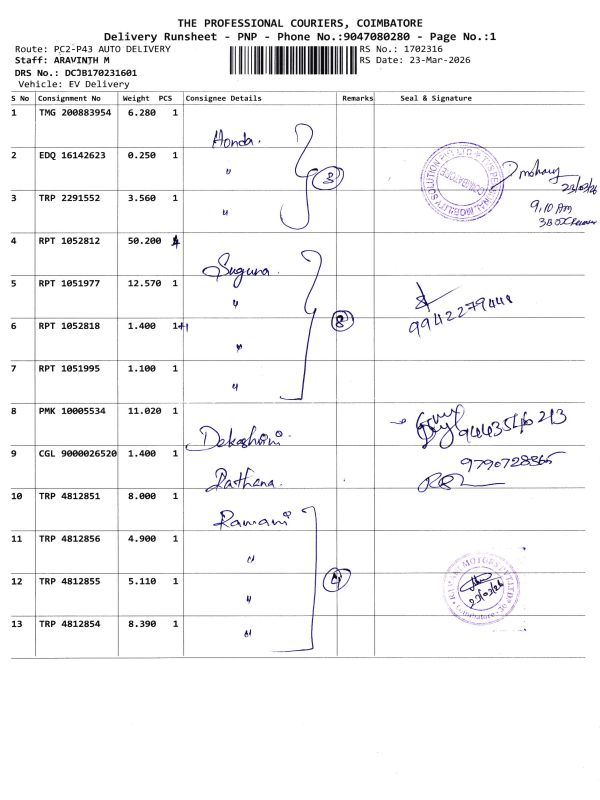 THE PROFESSIONAL COURIERS, COIMBATORE
Delivery Runsheet - PNP - Phone No.:9047080280 - Page No.:1
Route: PC2-P43 AUTO DELIVERY RS No.: 1702316
Staff: ARAVINTH M RS Date: 23-Mar-2026
DRS No.: DCJB170231601
Vehicle: EV Delivery
S No Consignment No Weight PCS Consignee Details Remarks Seal & Signature
1 TMG 200883954 6.280 1 Honda.
2 EDQ 16142623 0.250 1 " 3
3 TRP 2291552 3.560 1 " 23/03/26
9.10 Am
4 RPT 1052812 50.200 Suguna.
5 RPT 1051977 12.570 1 " 9942279441
6 RPT 1052818 1.400 1+1 " 8
7 RPT 1051995 1.100 1 "
8 PMK 10005534 11.020 1
9 CGL 9000026520 1.400 1 Rathna. 9790728365
10 TRP 4812851 8.000 1 Ramani
11 TRP 4812856 4.900 1 "
12 TRP 4812855 5.110 1 " 4 23/03/26
13 TRP 4812854 8.390 1 "